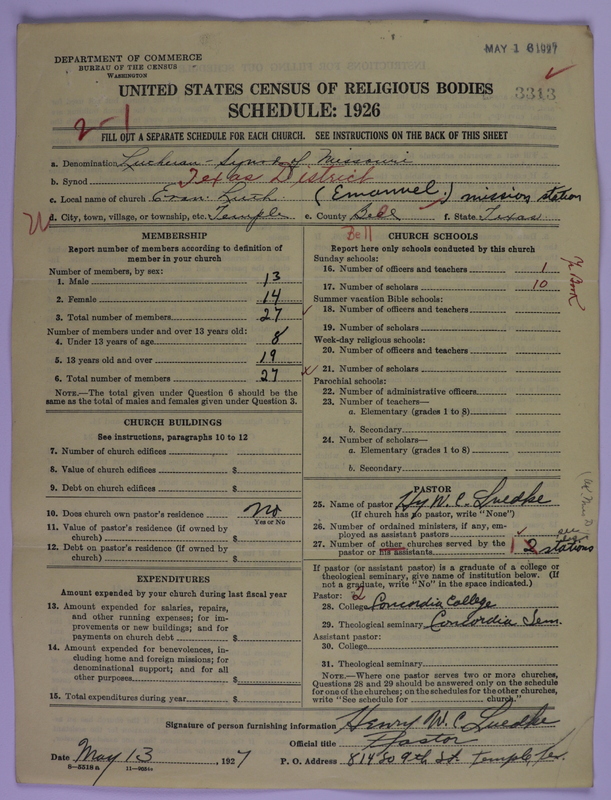 MAY 16 1927
DEPARTMENT OF COMMERCE
BUREAU OF THE CENSUS
WASHINGTON
UNITED STATES CENSUS OF RELIGIOUS BODIES
3313
SCHEDULE: 1926
2-1
FILL OUT A SEPARATE SCHEDULE FOR EACH CHURCH. SEE INSTRUCTIONS ON THE BACK OF THIS SHEET
a. Denomination Lutheran - Synod of Missouri
b. Synod Texas District
c. Local name of church Evan. Luth. (Emanuel.) mission station
d. City, town, village, or township, etc. Temple e. County Bell f. State Texas
Bell
MEMBERSHIP
Report number of members according to definition of
member in your church
Number of members, by sex:
1. Male 13
2. Female 14
3. Total number of members 27
Number of members under and over 13 years old:
4. Under 13 years of age 8
5. 13 years old and over 19
6. Total number of members 27
NOTE.—The total given under Question 6 should be the
same as the total of males and females given under Question 3.
CHURCH BUILDINGS
See instructions, paragraphs 10 to 12
7. Number of church edifices
8. Value of church edifices $
9. Debt on church edifices $
10. Does church own pastor's residence No
Yes or No
11. Value of pastor's residence (if owned by
church) $
12. Debt on pastor's residence (if owned by
church) $
EXPENDITURES
Amount expended by your church during last fiscal year
13. Amount expended for salaries, repairs,
and other running expenses; for im-
provements or new buildings; and for
payments on church debt $
14. Amount expended for benevolences, in-
cluding home and foreign missions; for
denominational support; and for all
other purposes $
15. Total expenditures during year $
CHURCH SCHOOLS
Report here only schools conducted by this church
Sunday schools:
16. Number of officers and teachers 1
17. Number of scholars 10
Yr Book
Summer vacation Bible schools:
18. Number of officers and teachers
19. Number of scholars
Week-day religious schools:
20. Number of officers and teachers
21. Number of scholars
Parochial schools:
22. Number of administrative officers
23. Number of teachers—
a. Elementary (grades 1 to 8)
b. Secondary
24. Number of scholars—
a. Elementary (grades 1 to 8)
b. Secondary
PASTOR
25. Name of pastor Hy W. C. Luedke
(If church has no pastor, write "None")
26. Number of ordained ministers, if any, em-
ployed as assistant pastors
27. Number of other churches served by the
pastor or his assistants 1 2 stations
If pastor (or assistant pastor) is a graduate of a college or
theological seminary, give name of institution below. (If
not a graduate, write "No" in the space indicated.)
Pastor:
28. College Concordia College
29. Theological seminary Concordia Sem.
Assistant pastor:
30. College
31. Theological seminary
NOTE.—Where one pastor serves two or more churches,
Questions 28 and 29 should be answered only on the schedule
for one of the churches; on the schedules for the other churches,
write "See schedule for church."
Signature of person furnishing information Henry W. C. Luedke
Official title Pastor
Date May 13, 1927 P. O. Address 814 So 9th St. Temple, Tex.
8—5518a 11—9034